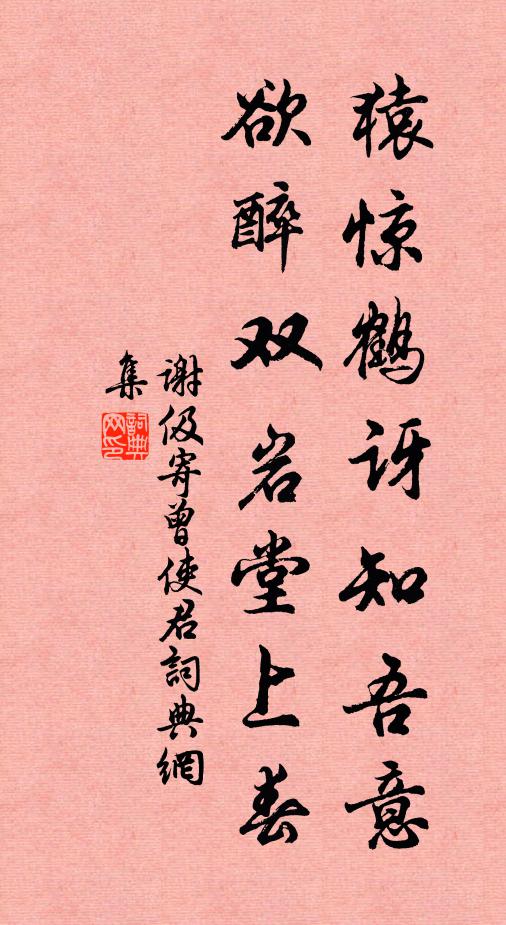 猿惊鹤讶知吾意
欲醉双岩堂上春
谢伋寄曾使君詞典網
集
詞典
网印